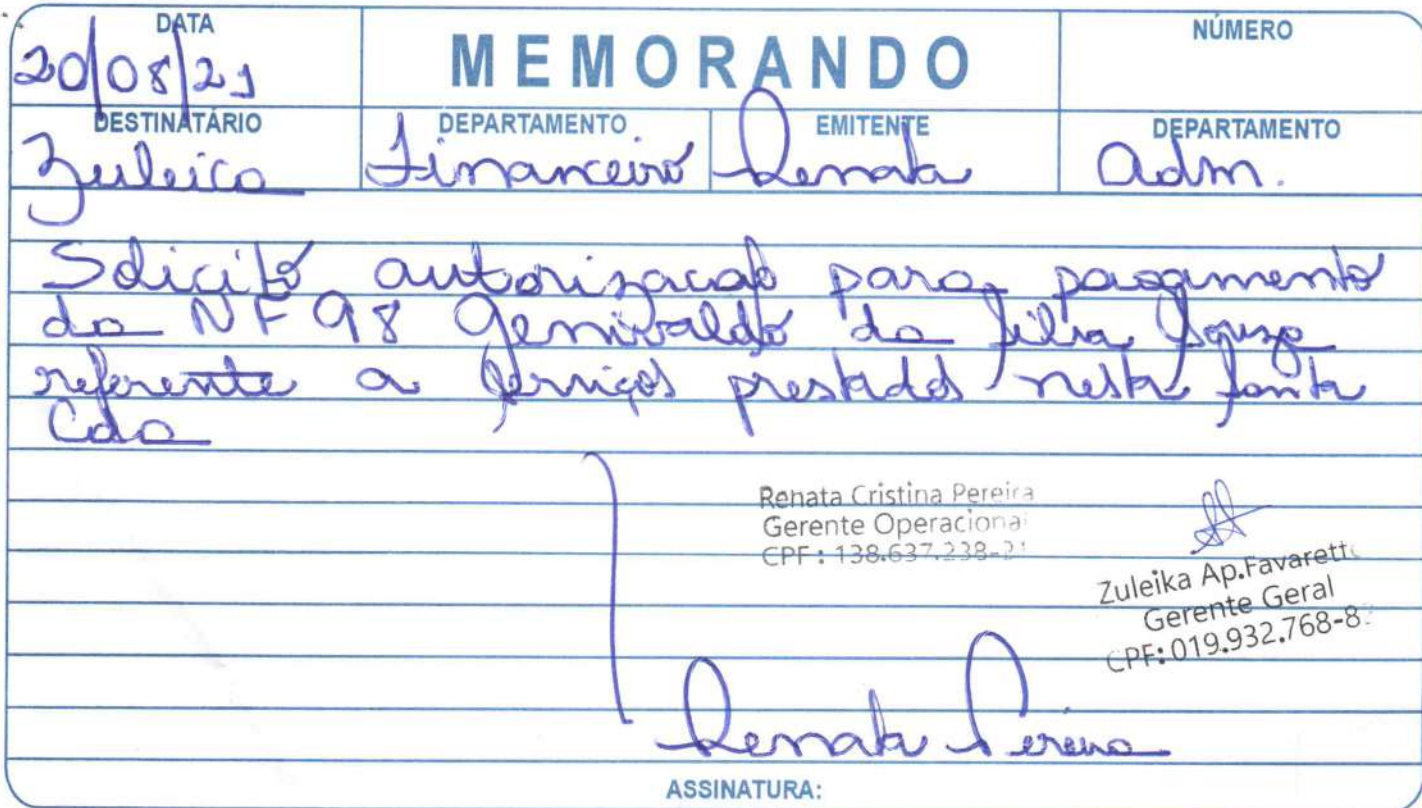 DATA
20/08/21
MEMORANDO
NÚMERO
DESTINATÁRIO
Zuleica
DEPARTAMENTO
Financeiro
EMITENTE
Renata
DEPARTAMENTO
Adm.
Solicito autorizacao para pagamento
da NF 98 Genivaldo da Silva Souza
referente a serviços prestados nesta Santa
Casa
Renata Cristina Pereira
Gerente Operacional
CPF: 138.637.238-21
Zuleika Ap.Favaretto
Gerente Geral
CPF: 019.932.768-8
Renata Pereira
ASSINATURA: